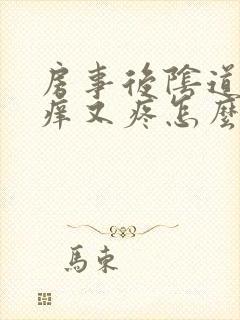 房事後陰道
癢又疼怎麼
馬東